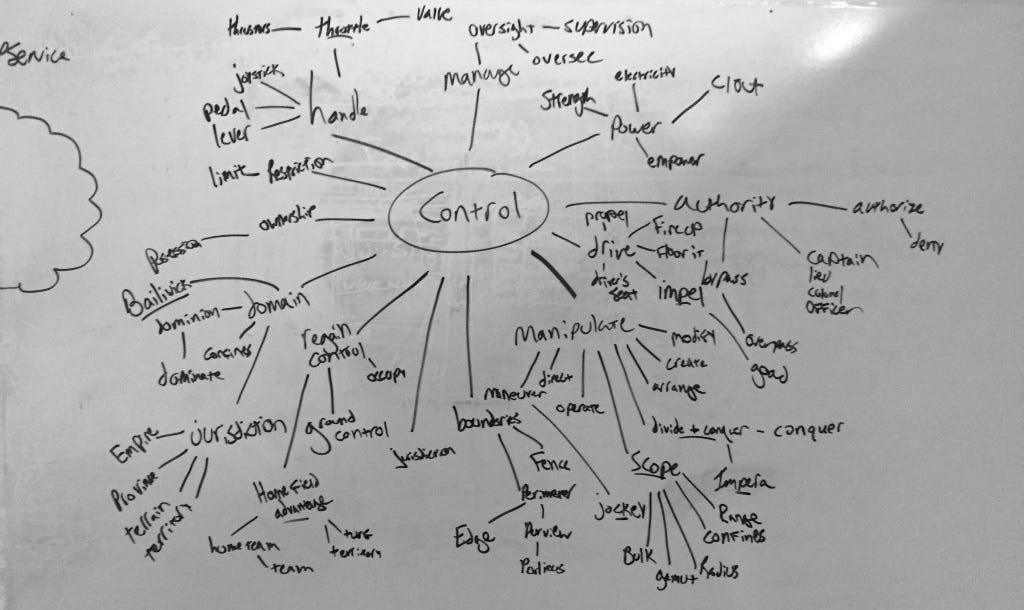 Service
thrusters
throttle
Valve
oversight - supervision
oversee
manage
joystick
pedal
lever
handle
electricity
Strength
Clout
Power
empower
limit
Restriction
Control
authority
authorize
deny
ownership
propel
Fire up
Floor it
drive
driver's
seat
impel
bypass
Captain
lieu
Colonel
Officer
Bailiwick
domain
dominion
Confines
dominate
regain
control
occupy
Manipulate
modify
create
arrange
overpass
goad
maneuver
direct
operate
boundaries
ground
control
divide + conquer - conquer
Empire
Province
terrain
territory
Home Field
advantage
home team
team
turf
territory
Fence
Perimeter
Purview
Edge
jockey
Scope
Impera
Range
Confines
Radius
gamut
Bulk